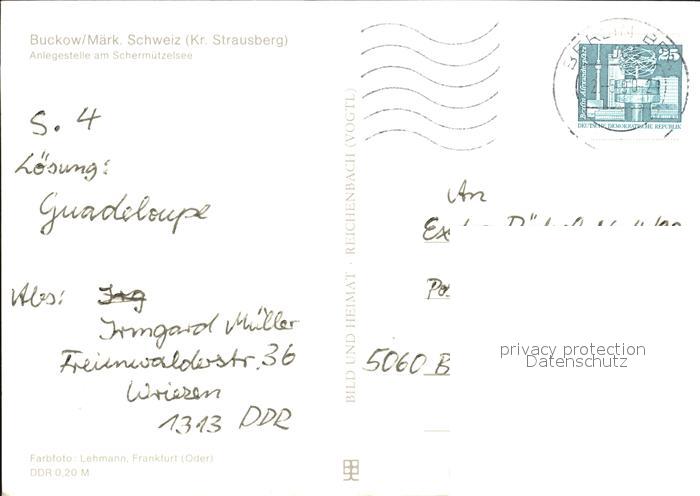 Buckow/Märk. Schweiz (Kr. Strausberg)
Anlegestelle am Schermützelsee
S. 4
Lösung:
Guadeloupe
Abs:
Irmgard Müller
Freienwalderstr. 36
Wriezen
1313 DDR
Farbfoto: Lehmann, Frankfurt (Oder)
DDR 0,20 M
BILD UND HEIMAT · REICHENBACH (VOGTL)
BERLIN
25
Berlin, Alexanderplatz
DEUTSCHE DEMOKRATISCHE REPUBLIK
An
5060 B
privacy protection
Datenschutz